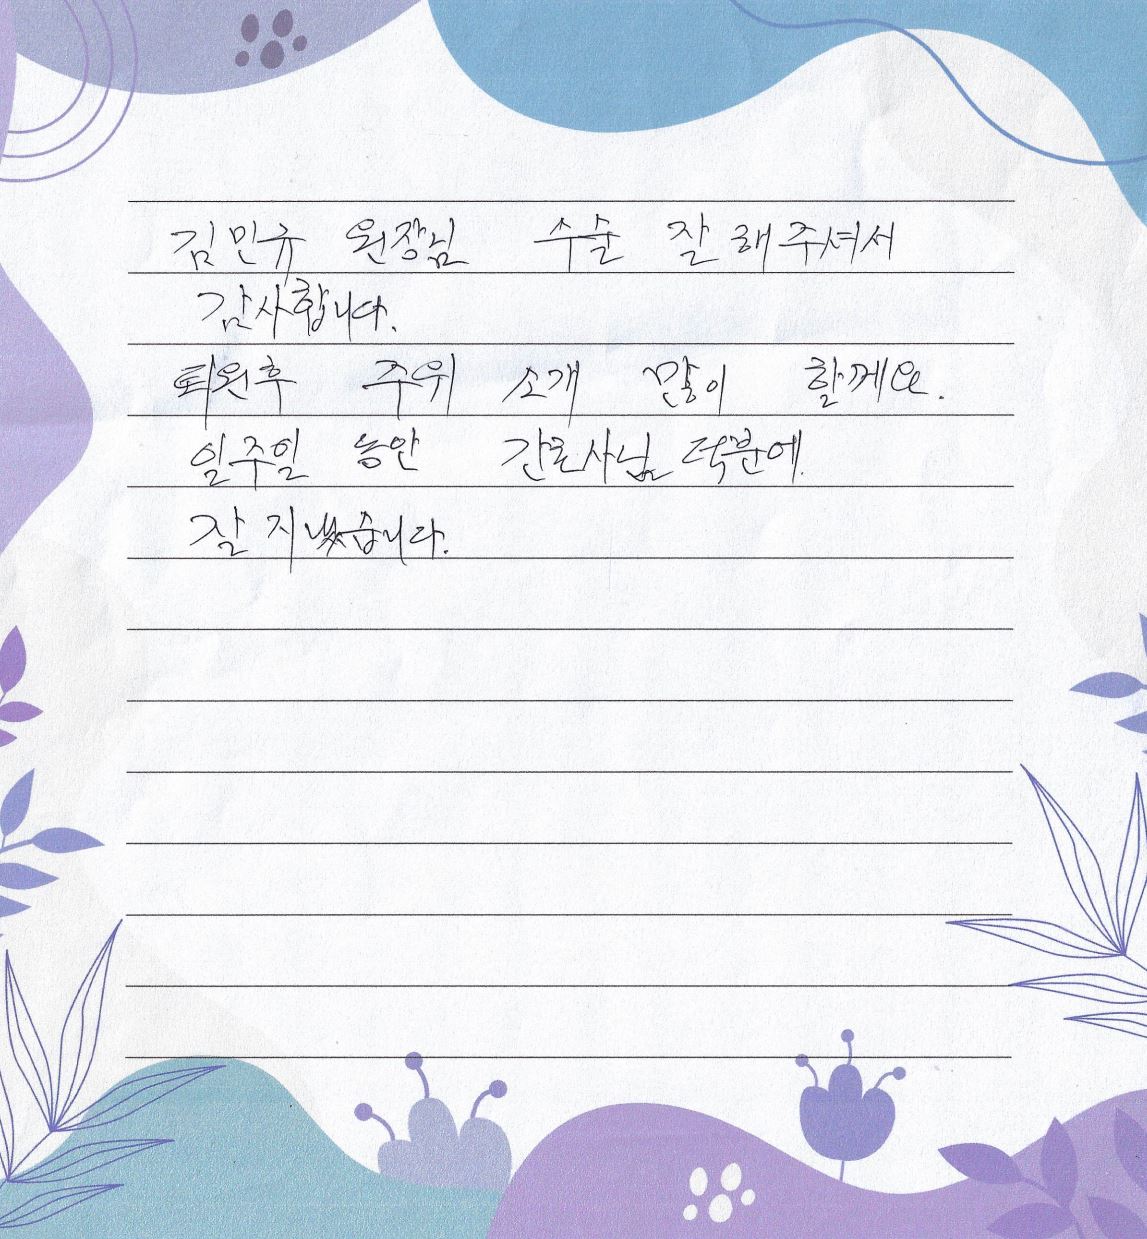 김민규 원장님 수술 잘 해주셔서
감사합니다.
퇴원후 주위 소개 많이 할께요.
일주일 동안 간호사님 덕분에.
잘 지냈습니다.